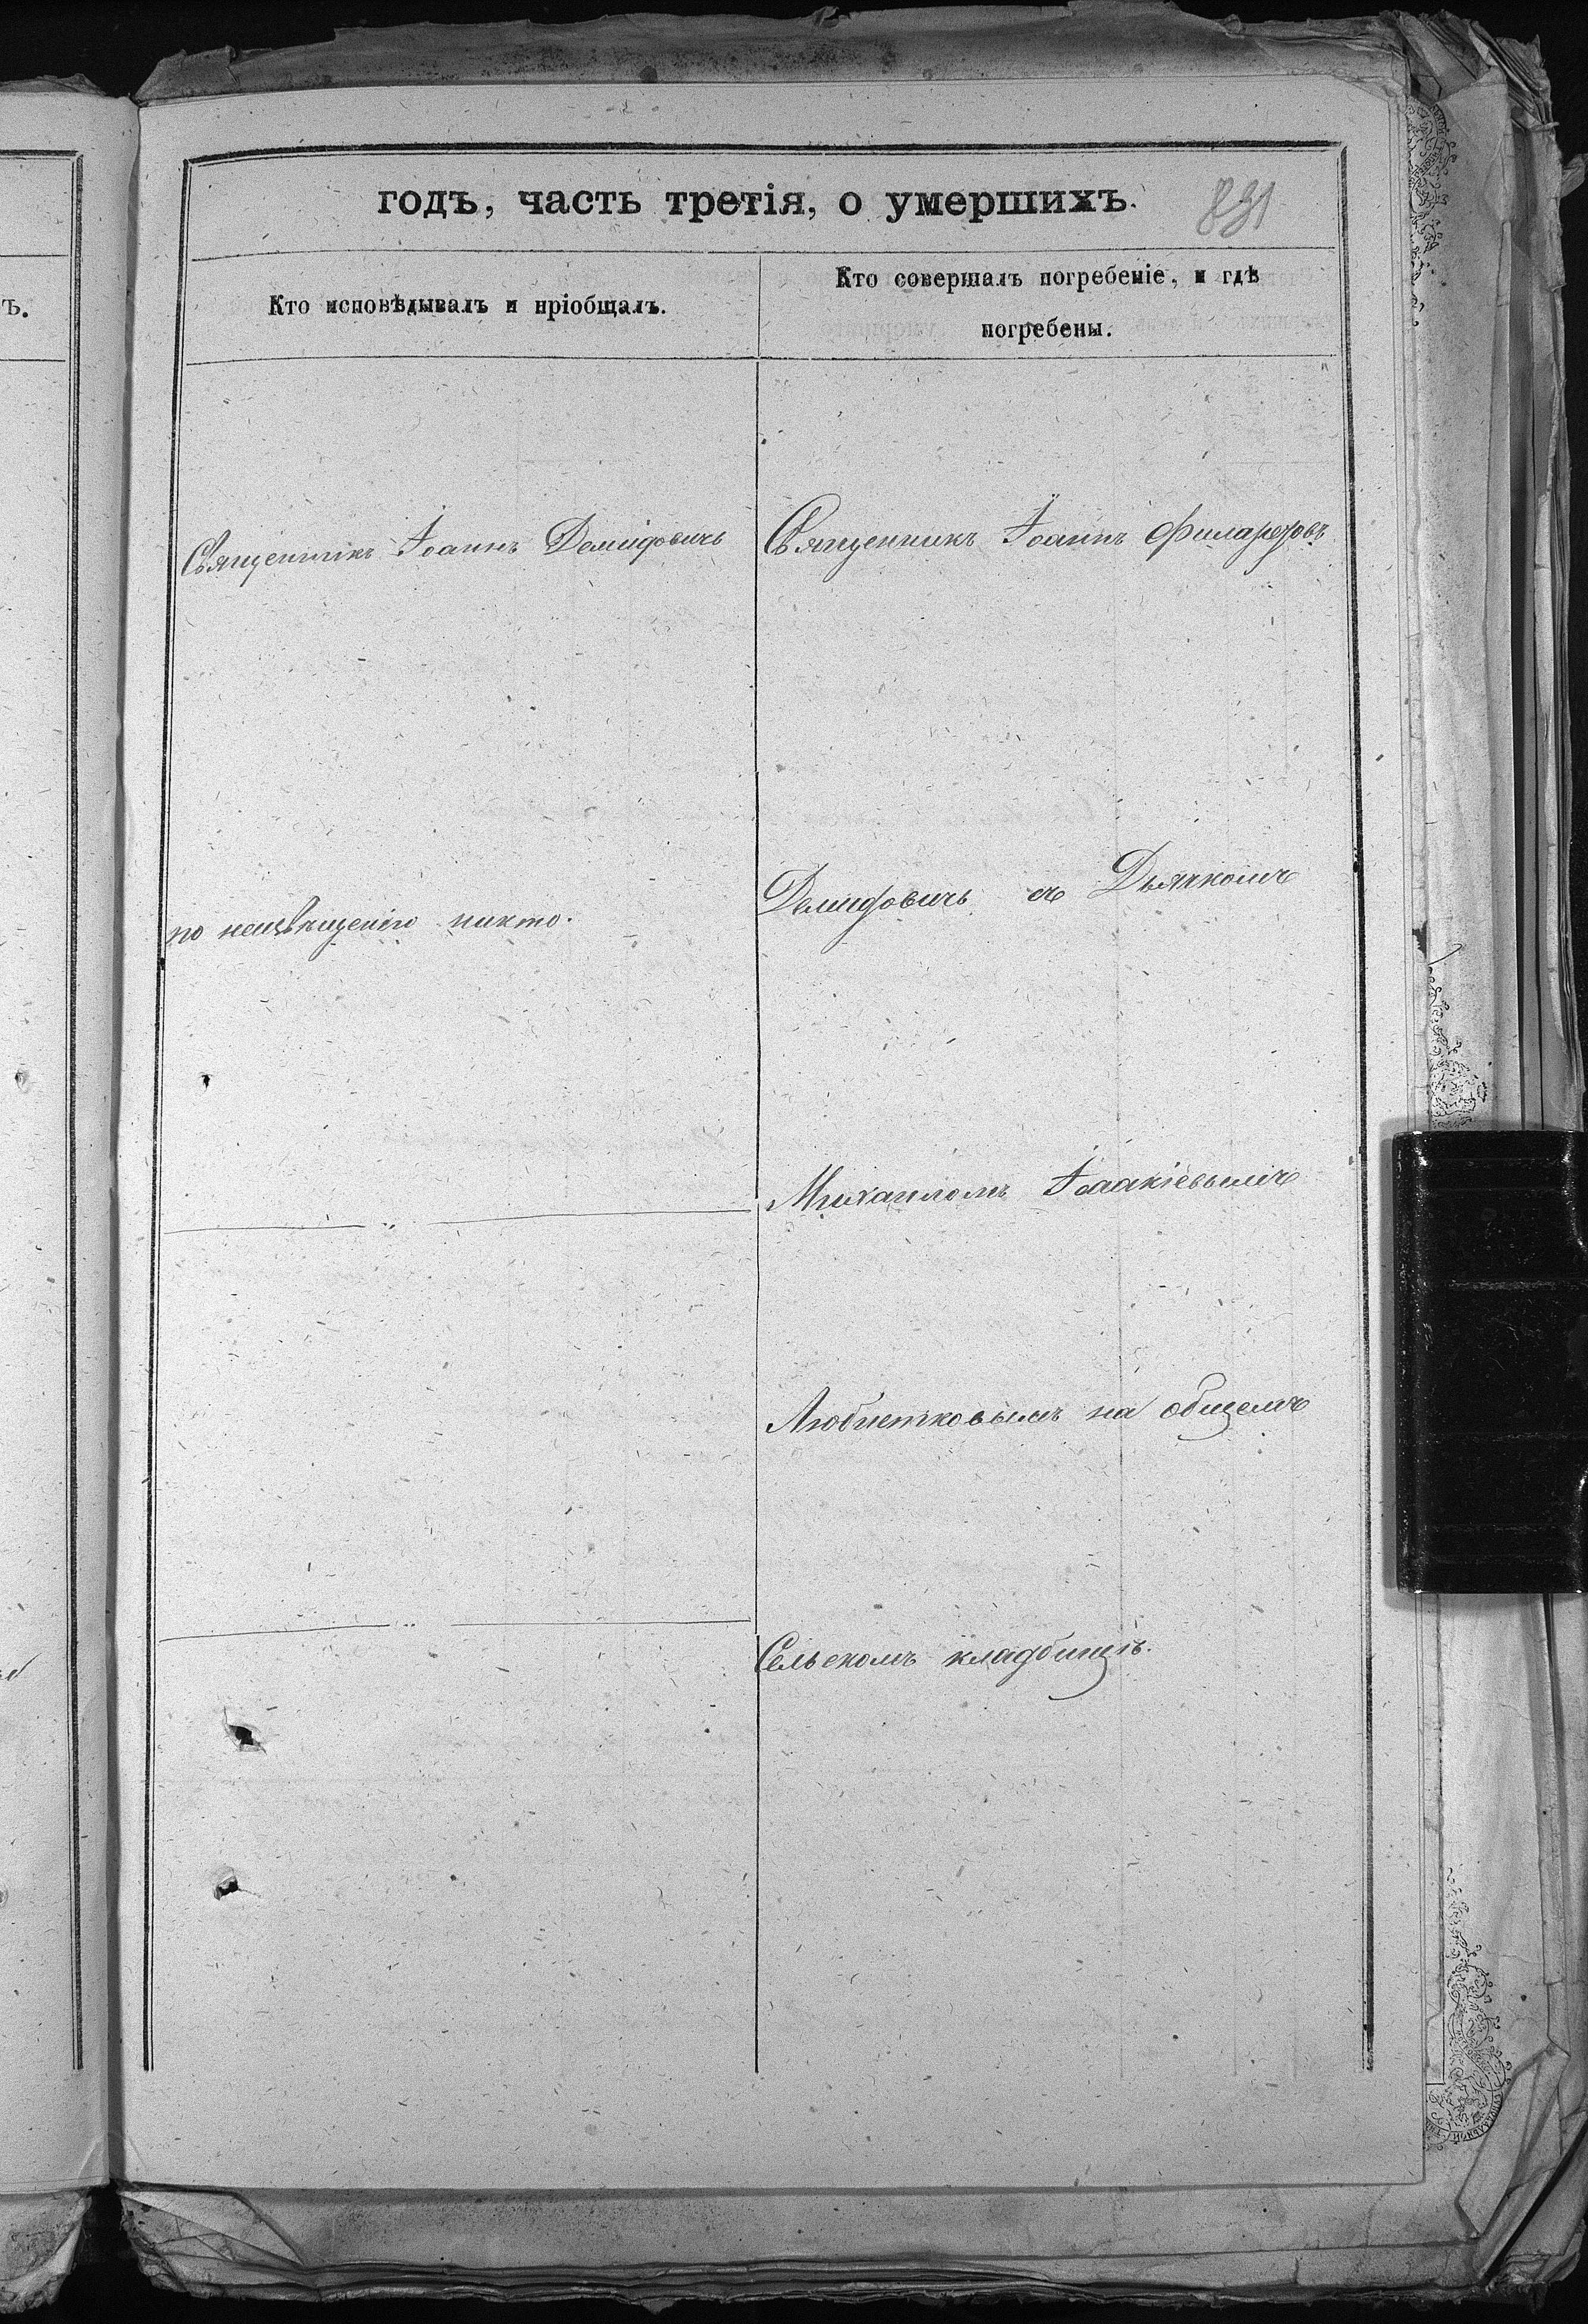 годъ, часть третія, о умершихъ.
831
Кто исповѣдывалъ и пріобщалъ.
Кто совершалъ погребеніе, и гдѣ
погребены.
Священникъ Іоаннъ Демидовичъ
по неизвѣщенію никто.
Священникъ Іоаннъ
Демидовичъ съ Дьячкомъ
Михаиломъ Іоакіевымъ
на общемъ
Сельскомъ кладбищѣ.